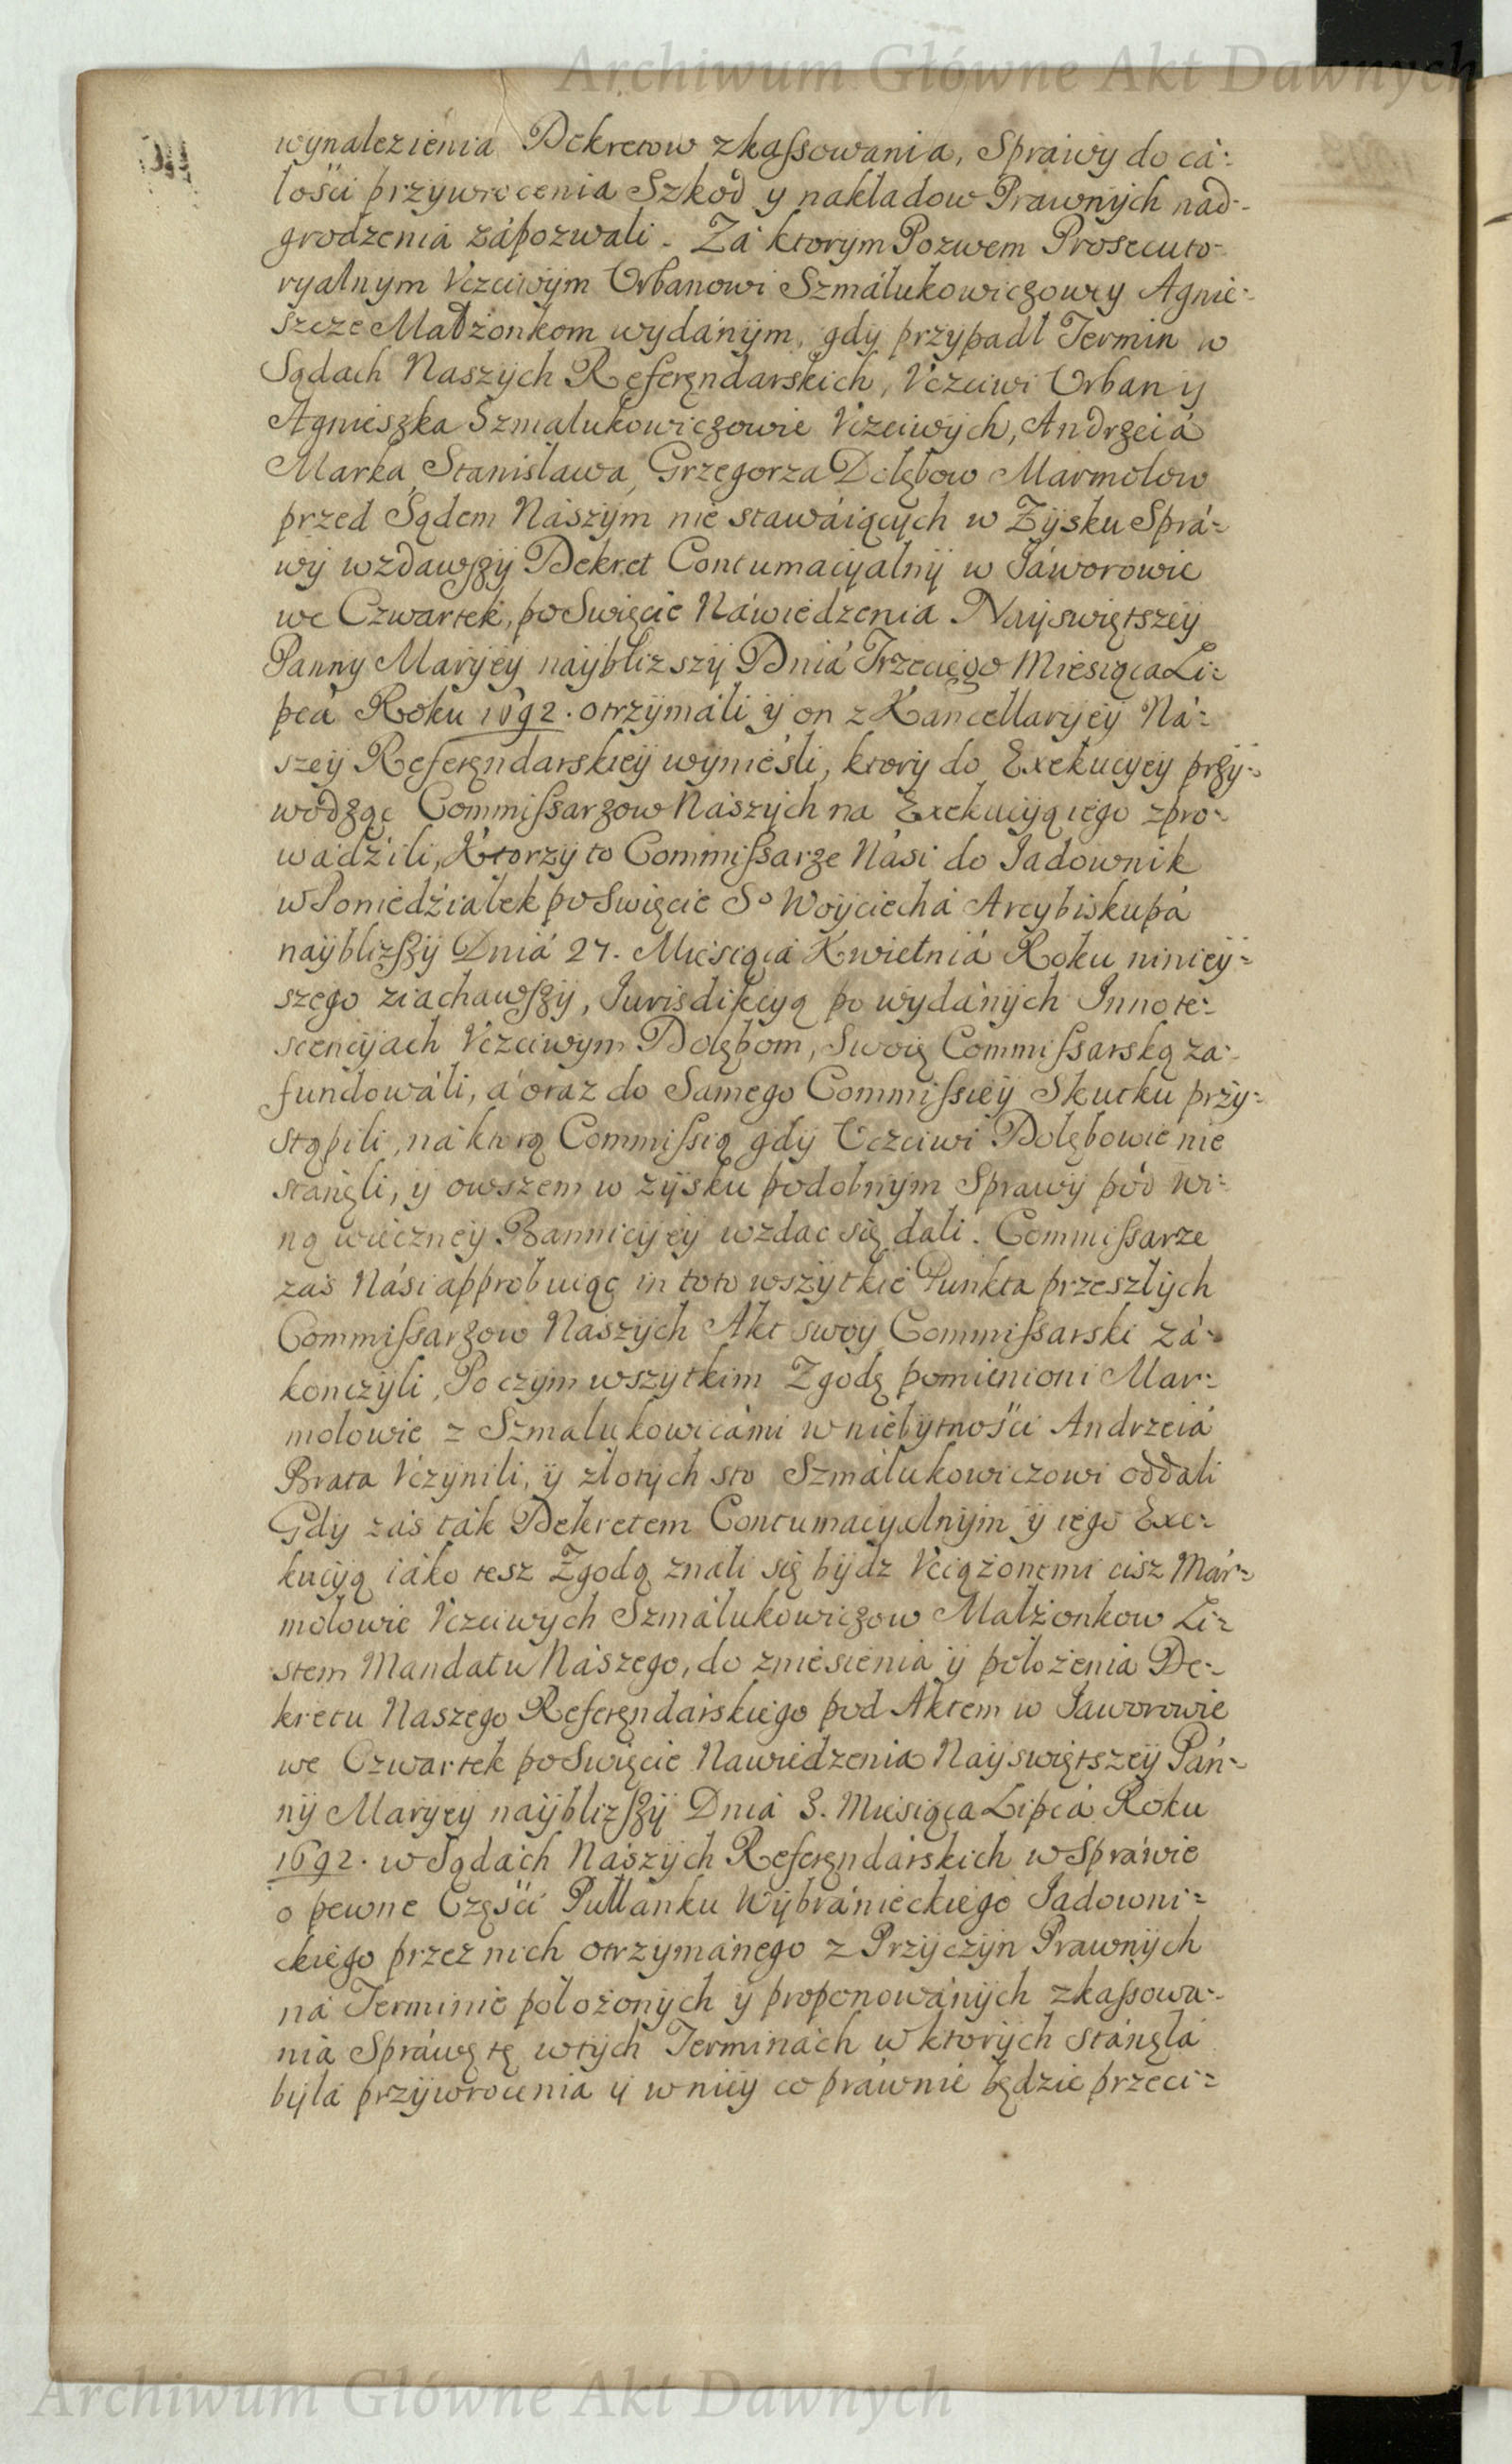 Archiwum Główne Akt Dawnych
wynalezienia Dekretow zkaſsowania, Sprawy do ca=
lości przywrocenia Szkod y nakladow Prawnych nad=
grodzenia zápozwali. Zá ktorym Pozwem Prosecuto=
ryalnym Vczciwym Urbanowi Szmálukowiczowi y Agnie=
szcze Małżonkom wydánym, gdy przypadl Termin w
Sądach Naszych Referęndarskich, Vczciwi Urban y
Agnieszka Szmalukowiczowie Vczciwych, Andrzeiá
Marka, Stanisława, Grzegorza Dolębow Marmolow
przed Sądem Nászym nie stawáiących w Zysku Sprá=
wy wzdawſzy Dekret Contumacyalny w Jáworowie
we Czwartek, po Swięcie Náwiedzenia Nayswiętszey
Panny Maryey naybliższy Dniá Trzeciego Miesiąca Li=
pcá Roku 1692. otrzymáli y on z Kancellaryey Ná=
szey Referęndarskiey wynieśli, ktory do Exekucyey przy=
wodząc Commiſsarzow Nászych na Exekucyą iego zpro=
wádźili, Ktorzy to Commiſsarze Nási do Jadownik
w Poniedźiałek po Swięcie So Woyciechá Arcybiskupá
naybliżſzy Dniá 27. Miesiącá Kwietniá Roku niniey=
szego ziachawſzy, Jurisdikcyą po wydánych Innote=
scencyach Vczciwym Dolębom, Swoię Commiſsarską za=
fundowáli, á oraz do Samego Commiſsiey Skutku przy=
stąpili, ná ktorą Commiſsią gdy Uczciwi Dolębowie nie
stanęli, y owszem w zysku podobnym Sprawy pod wi=
ną wieczney Bannicyey wzdac się dali. Commiſsarze
zas Nási approbuiąc in toto wszytkie Punkta przeszłych
Commiſsarzow Naszych Akt swoy Commiſsarski zá=
konczyli, Po czym wszytkim Zgodę pomienioni Mar=
molowie z Szmalukowicámi w niebytnośći Andrzeiá
Brata Vczynili, y złotych sto Szmálukowiczowi oddali
Gdy zás ták Dekretem Contumacyalnym y iego Exe=
kucyą iáko tesz Zgodą znali się bydz Vciążonemi cisz Már=
molowie Vczciwych Szmálukowiczow Małżonkow Li=
stem Mandatu Nászego, do zniesienia y położenia De=
kretu Naszego Referęndarskiego pod Aktem w Jaworowie
we Czwartek po Swięcie Nawiedzenia Nayswiętszey Pán=
ny Maryey naybliżſzy Dniá 3. Miesiąca Lipcá Roku
1692. w Sądách Nászych Referęndárskich w Spráwie
o pewne Częśći Pułłanku Wybránieckiego Jadowni=
ckiego przez nich otrzymánego z Przyczyn Prawnych
ná Terminie położonych y proponowánych zkaſsowa=
niá Spráwę tę w tych Terminách w ktorych stánęlá
bylá przywrocenia y w niey co práwnie będzie przeci=
Archiwum Główne Akt Dawnych